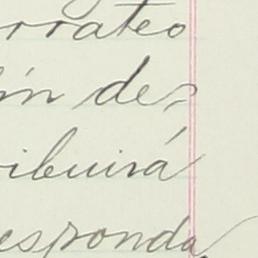 rrateo
ión de
ribuirá
esponda